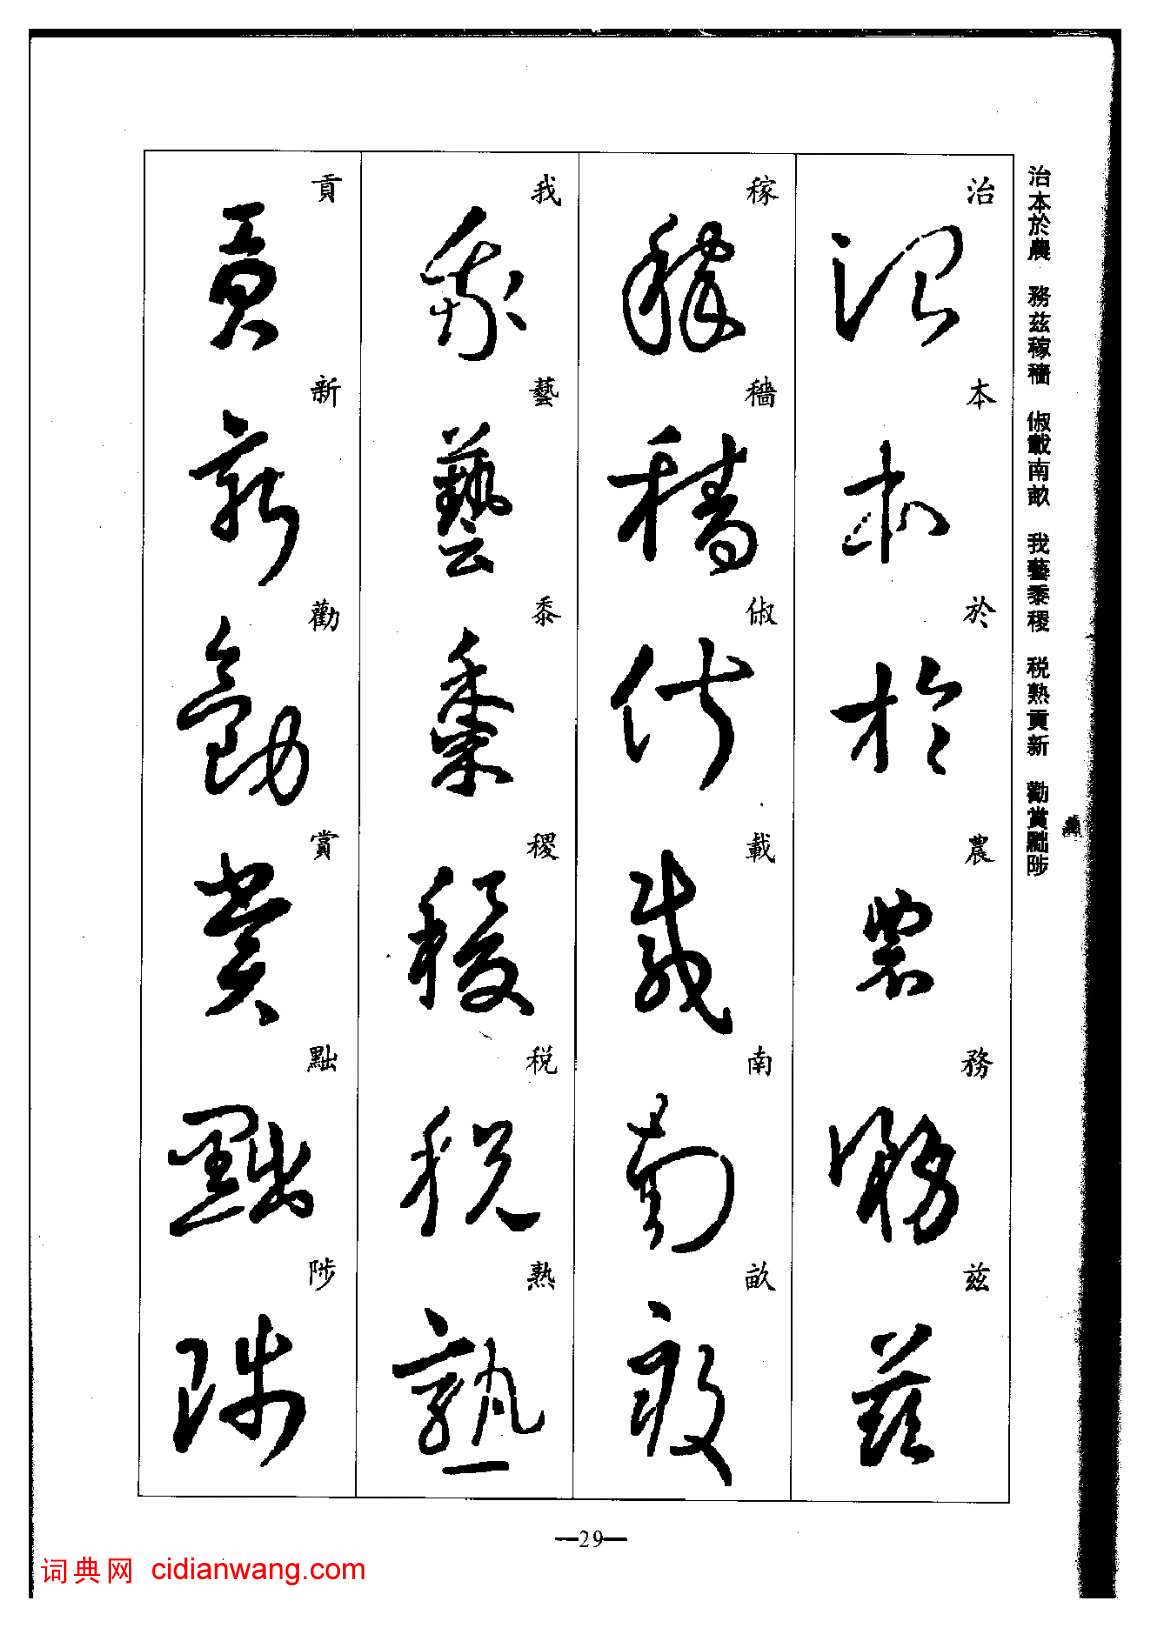 治本於農 務茲稼穡 俶載南畝 我藝黍稷 税熟貢新 勸賞黜陟
治本於農務茲
稼穡俶載南畝
我藝黍稷税熟
貢新勸賞黜陟
—29—
词典网 cidianwang.com